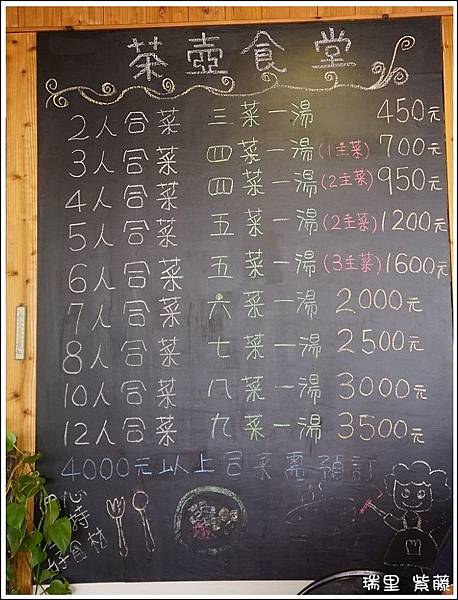 茶壺食堂
2人合菜 三菜一湯 450元
3人合菜 四菜一湯(1主菜) 700元
4人合菜 四菜一湯(2主菜) 950元
5人合菜 五菜一湯(2主菜) 1200元
6人合菜 五菜一湯(3主菜) 1600元
7人合菜 六菜一湯 2000元
8人合菜 七菜一湯 2500元
10人合菜 八菜一湯 3000元
12人合菜 九菜一湯 3500元
4000元以上合菜需預訂
好食材
瑞里 紫藤